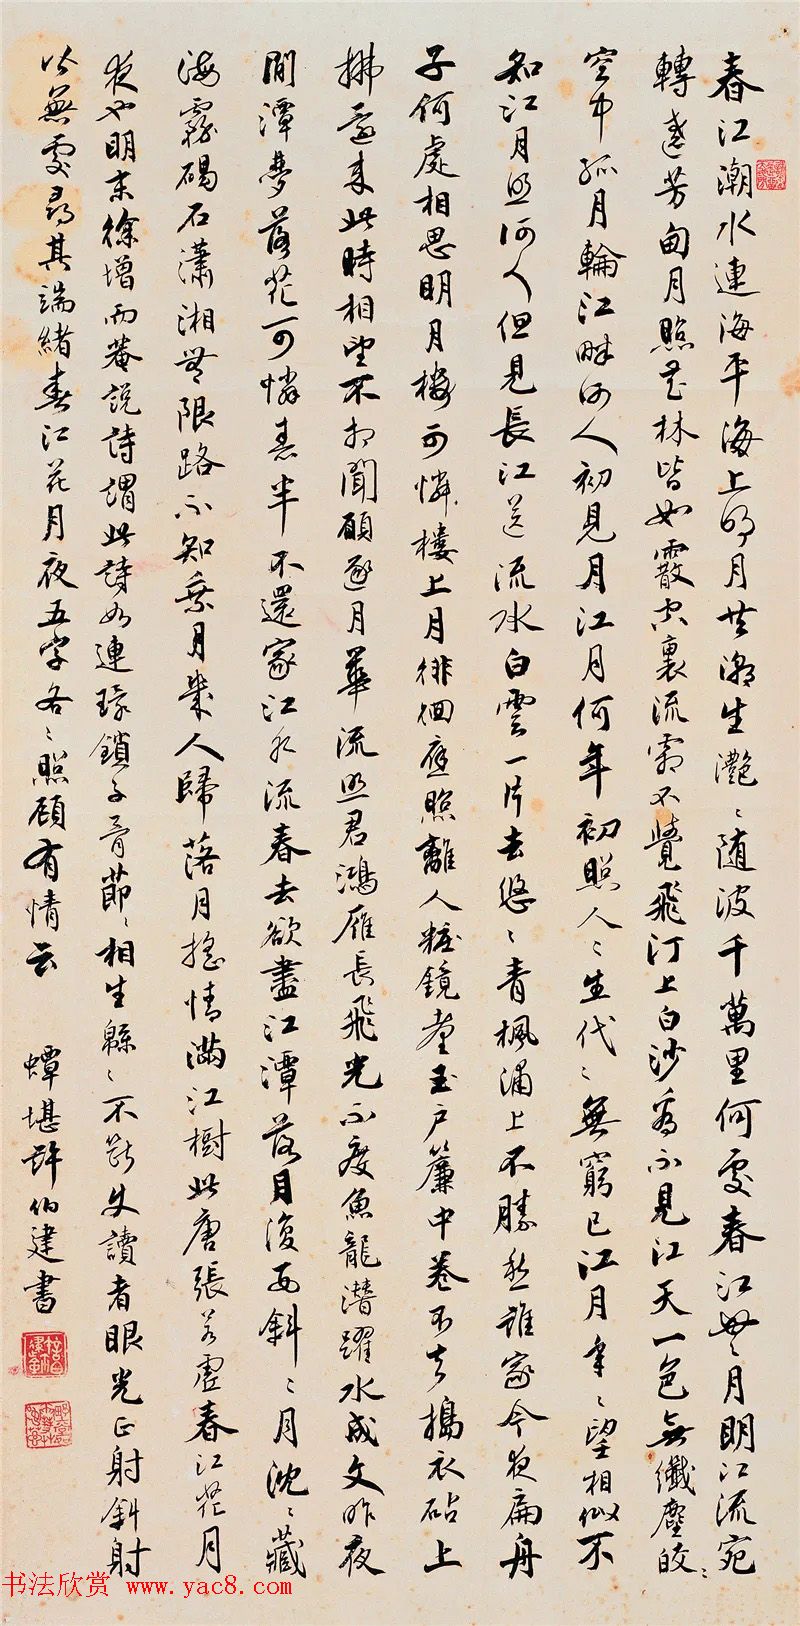 春江潮水連海平海上明月共潮生灧〻随波千萬里何處春江無月明江流宛
轉遶芳甸月照花林皆如霰空裏流霜不覺飛汀上白沙看不見江天一色無纖塵皎〻
空中孤月輪江畔何人初見月江月何年初照人〻生代〻無窮已江月年〻望相似不
知江月照何人但見長江送流水白雲一片去悠〻青楓浦上不勝愁誰家今夜扁舟
子何處相思明月樓可憐樓上月徘徊應照離人粧鏡臺玉戶簾中卷不去擣衣砧上
拂還來此時相望不相聞願逐月華流照君鴻雁長飛光不度魚龍潛躍水成文昨夜
間潭夢落花可憐春半不還家江水流春去欲盡江潭落月復西斜〻月沈〻藏
海霧碣石瀟湘無限路不知乘月幾人歸落月搖情滿江樹此唐張若虛春江花月
夜也明末徐增而菴說詩謂此詩如連環鎖子骨節〻相生緜〻不斷使讀者眼光正射斜射
無處尋其端緒春江花月夜五字各〻照顧有情云
蟫堪許伯建書
书法欣赏 www.yac8.com